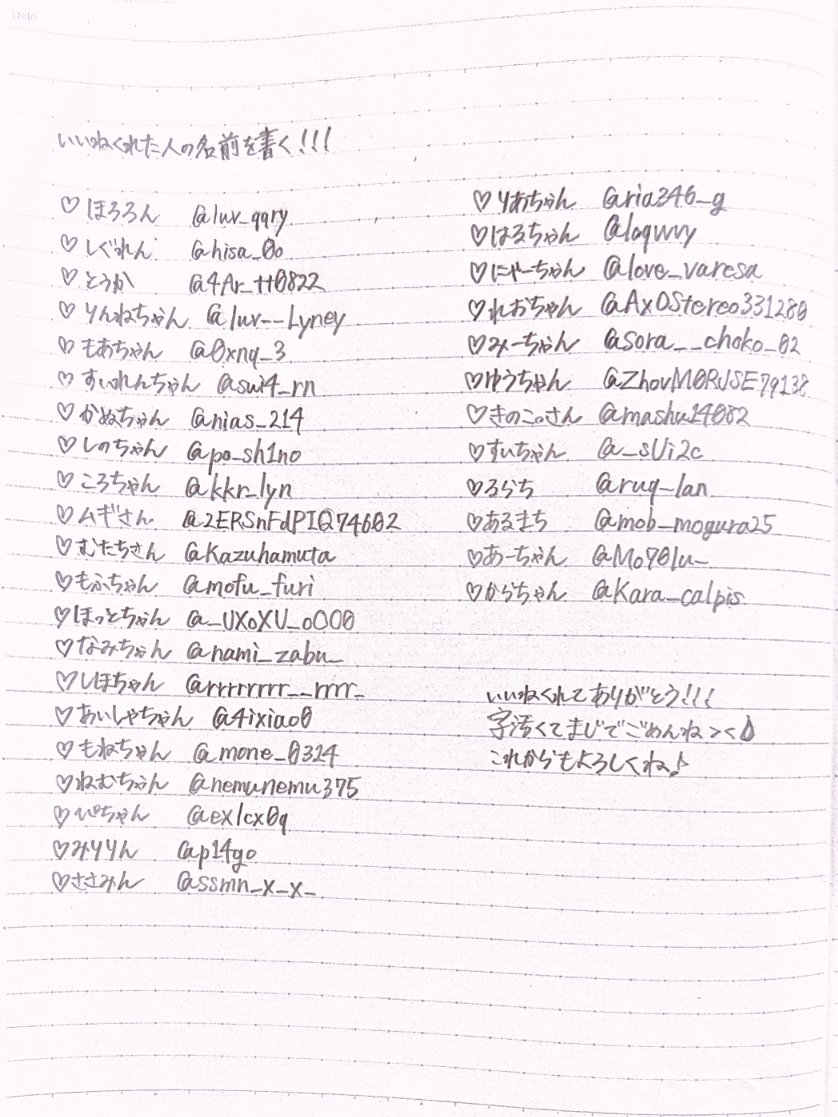 いいねくれた人の名前を書く!!!
♡ほろろん @luv_qqry
♡しぐれん @hisa_0o
♡とうか @4Ar_tt0822
♡りんねちゃん @luv__Lyney
♡もあちゃん @0xnq_3
♡すいれんちゃん @sui4_rn
♡かぬちゃん @nias_214
♡しのちゃん @po_sh1no
♡ころちゃん @kkr_lyn
♡ムギさん @2ERSnFdPIQ74602
♡むたちさん @kazuhamuta
♡もふちゃん @mofu_furi
♡ほっとちゃん @_UXoXU_oOO0
♡なみちゃん @nami_zabu_
♡しほちゃん @rrrrrrrr__rrrr_
♡あいしゃちゃん @4ixiao0
♡もねちゃん @mone_0314
♡ねむちゃん @nemunemu375
♡ぴちゃん @ex1cx0q
♡みりりん @p14go
♡ささみん @ssmn_x_x_
♡りおちゃん @ria346_g
♡はるちゃん @loqwvy
♡にゃーちゃん @love_varesa
♡れおちゃん @AxOStereo331280
♡みーちゃん @sora__choko_02
♡ゆうちゃん @ZhovM0RJSE79138
♡きのこっさん @mashu14082
♡すいちゃん @_sUi2c
♡るらち @ruq_lan
♡あるまち @mob_mogura25
♡あーちゃん @Mo701u_
♡からちゃん @Kara_calpis
いいねくれてありがとう!!!
字汚くてまじでごめんね><💧
これからもよろしくね♪